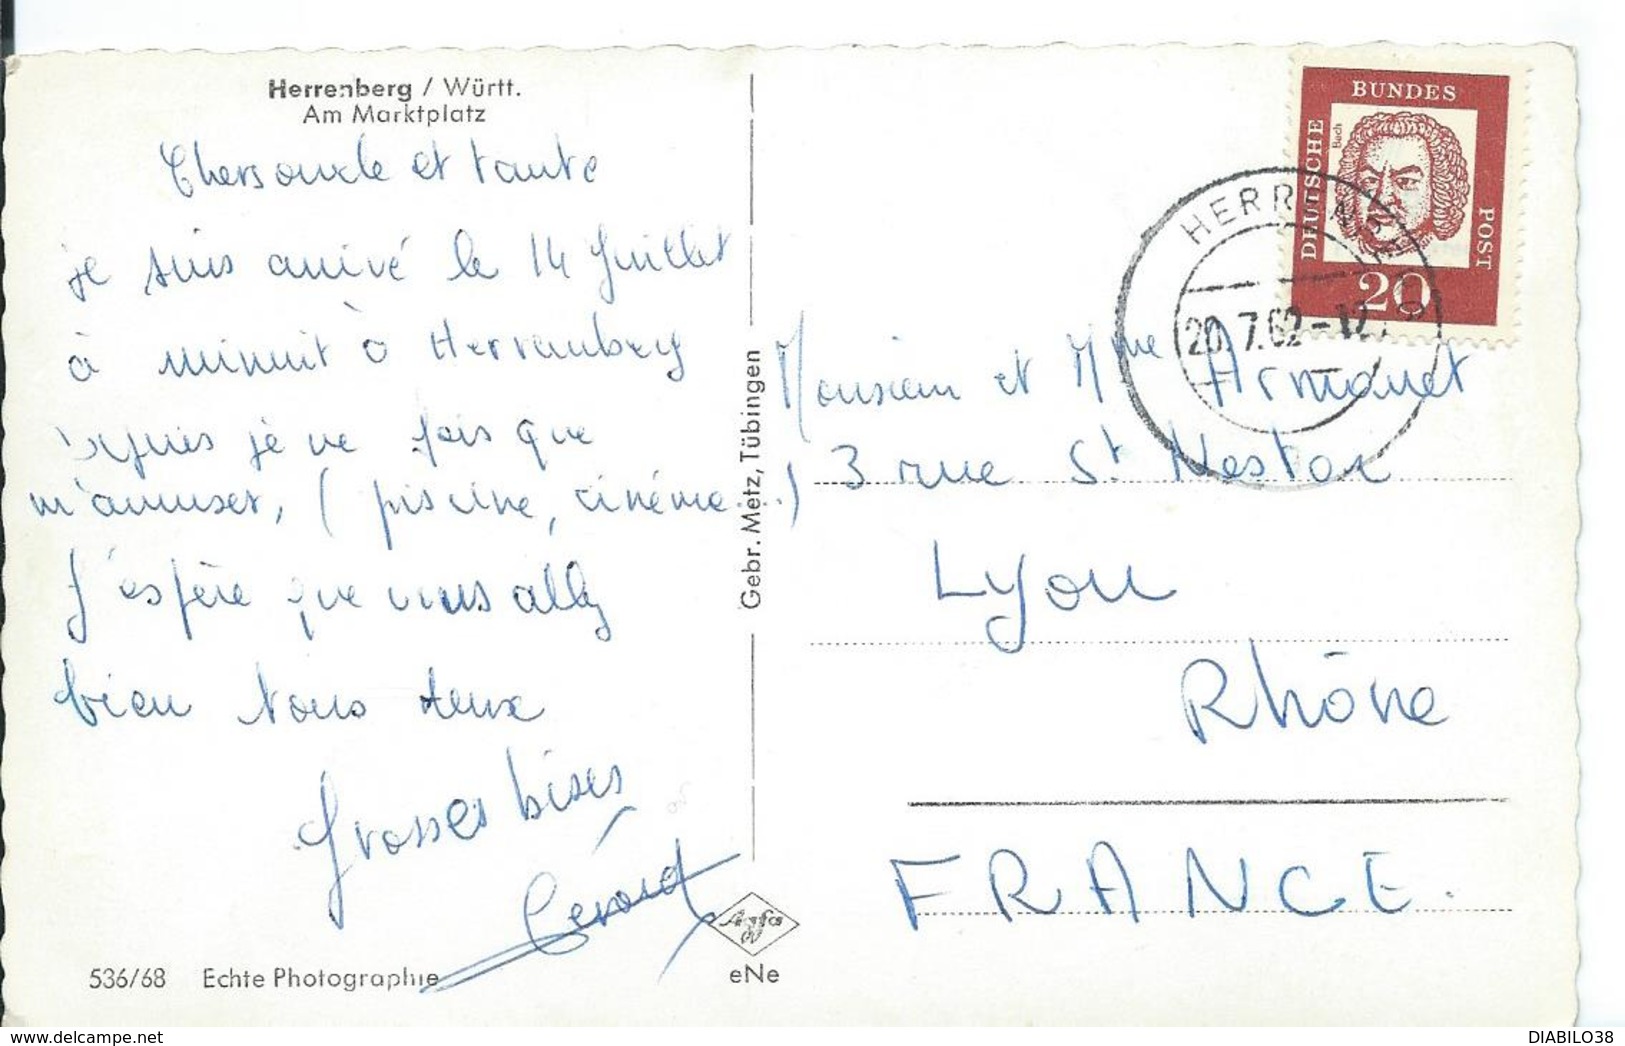 Herrenberg / Württ.
Am Marktplatz
Chers oncle et tante
je suis arrivé le 14 Juillet
à minuit à Herrenberg
depuis je ne fais que
m'amuser, ( piscine, cinéma...)
J'espère que vous allez
bien tous deux
Grosses bises
Gérard
536/68 Echte Photographie
Gebr. Metz, Tübingen
Agfa
eNe
DEUTSCHE BUNDES POST
Bach
20
HERRENBERG
20.7.62-12
Monsieur et Mme Armanet
3 rue St Nestor
Lyon
Rhône
FRANCE.
DIABILO38